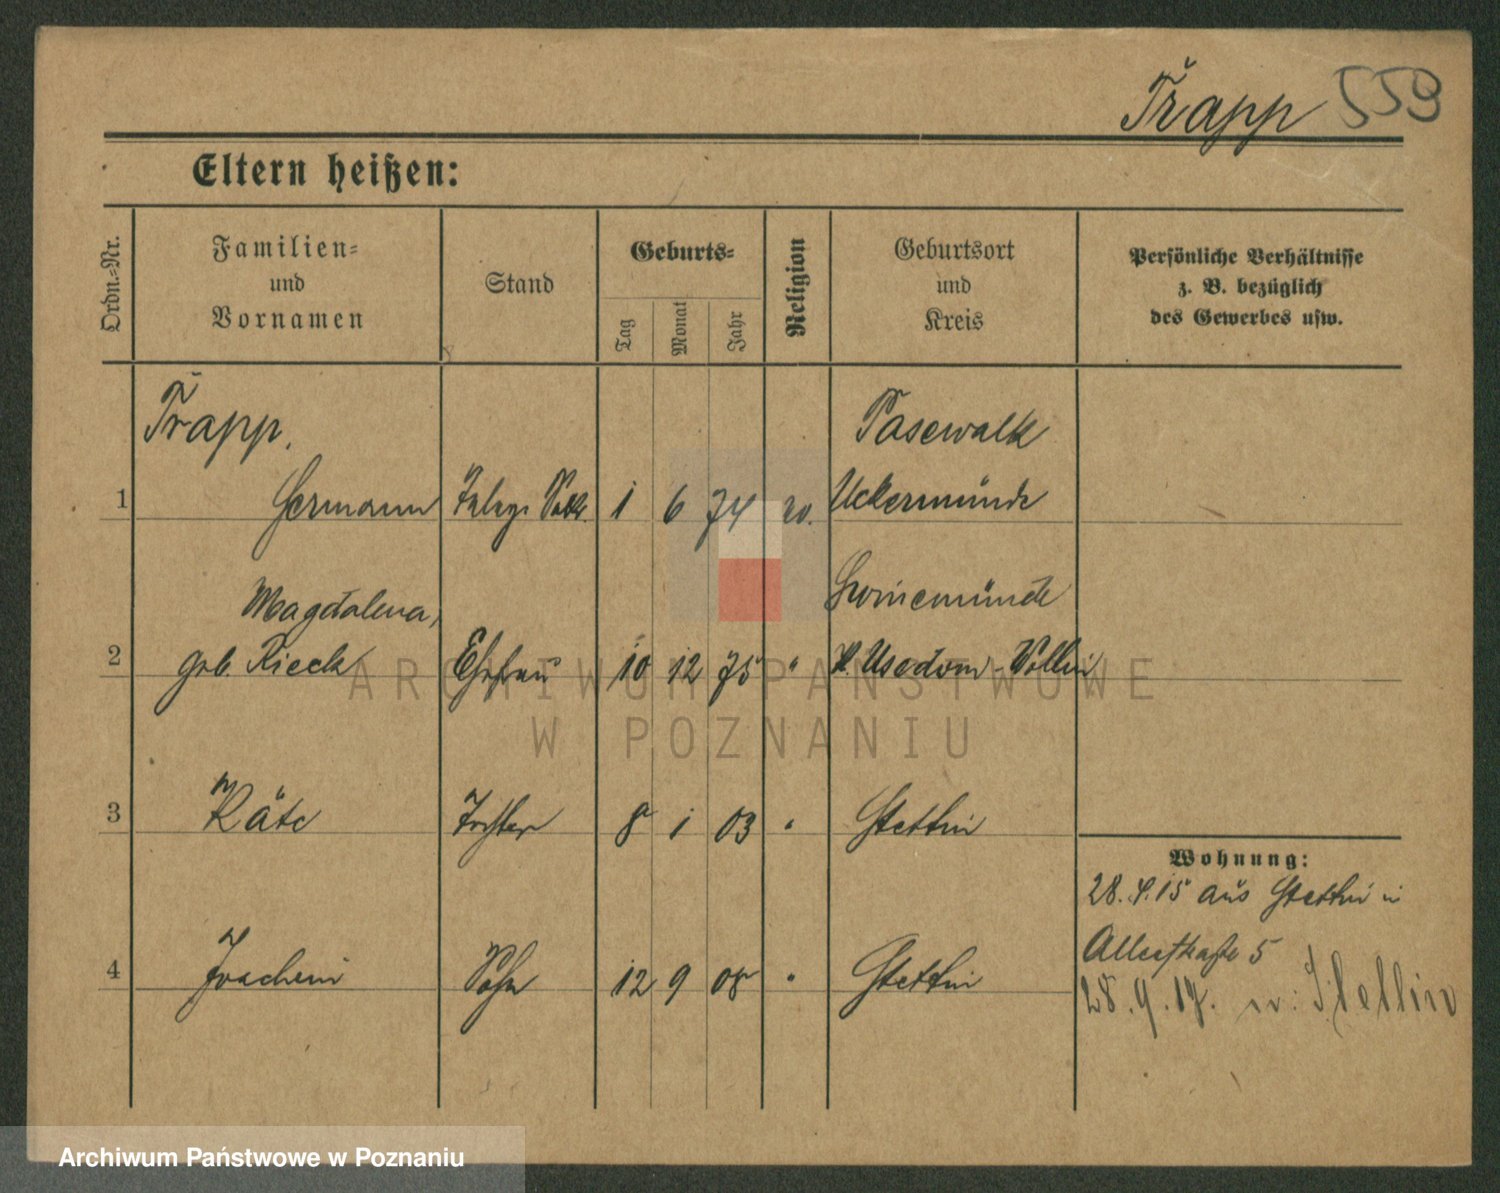 Trapp 559
Eltern heißen:
Ordn.-Nr.
Familien-
und
Vornamen
Stand
Geburts-
Tag
Monat
Jahr
Religion
Geburtsort
und
Kreis
Persönliche Verhältnisse
z. B. bezüglich
des Gewerbes usw.
Trapp, Pasewalk
1 Hermann 1 6 74 ev. Uckermünde
Magdalena, Swinemünde
2 geb. Rieck Ehefrau 10 12 75 " K. Usedom-Wollin
3 Käte Tochter 8 1 03 " Stettin
Wohnung:
28.4.15 aus Stettin in
Allerstraße 5
4 Joachim Sohn 12 9 08 " Stettin
28.9.17. n. Stettin
ARCHIWUM PAŃSTWOWE
W POZNANIU
Archiwum Państwowe w Poznaniu